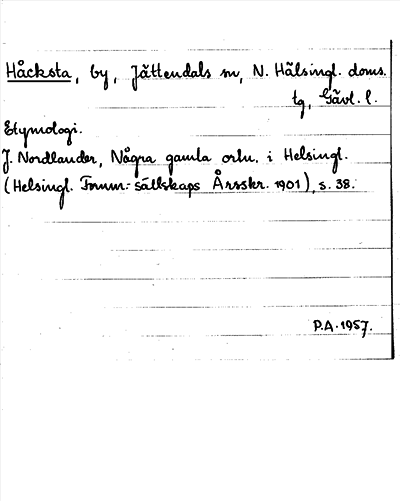 Håcksta, by, Jättendals sn, N. Hälsingl. doms.
tg, Gävl. l.
Etymologi.
J. Nordlander, Några gamla ortn. i Helsingl.
(Helsingl. Fornm.-sällskaps Årsskr. 1901), s. 38.
P.A. 1957.